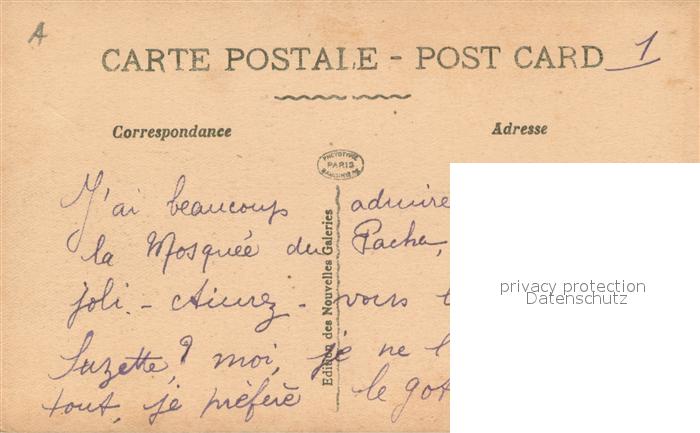 A
CARTE POSTALE - POST CARD 1
Correspondance
Adresse
PHOTOTYPIE
PARIS
J'ai beaucoup admiré
la Mosquée du Pacha,
privacy protection
Datenschutz
joli - Aimez - vous
Suzette? moi, je ne l
tout, je préfère le got
Edition des Nouvelles Galeries